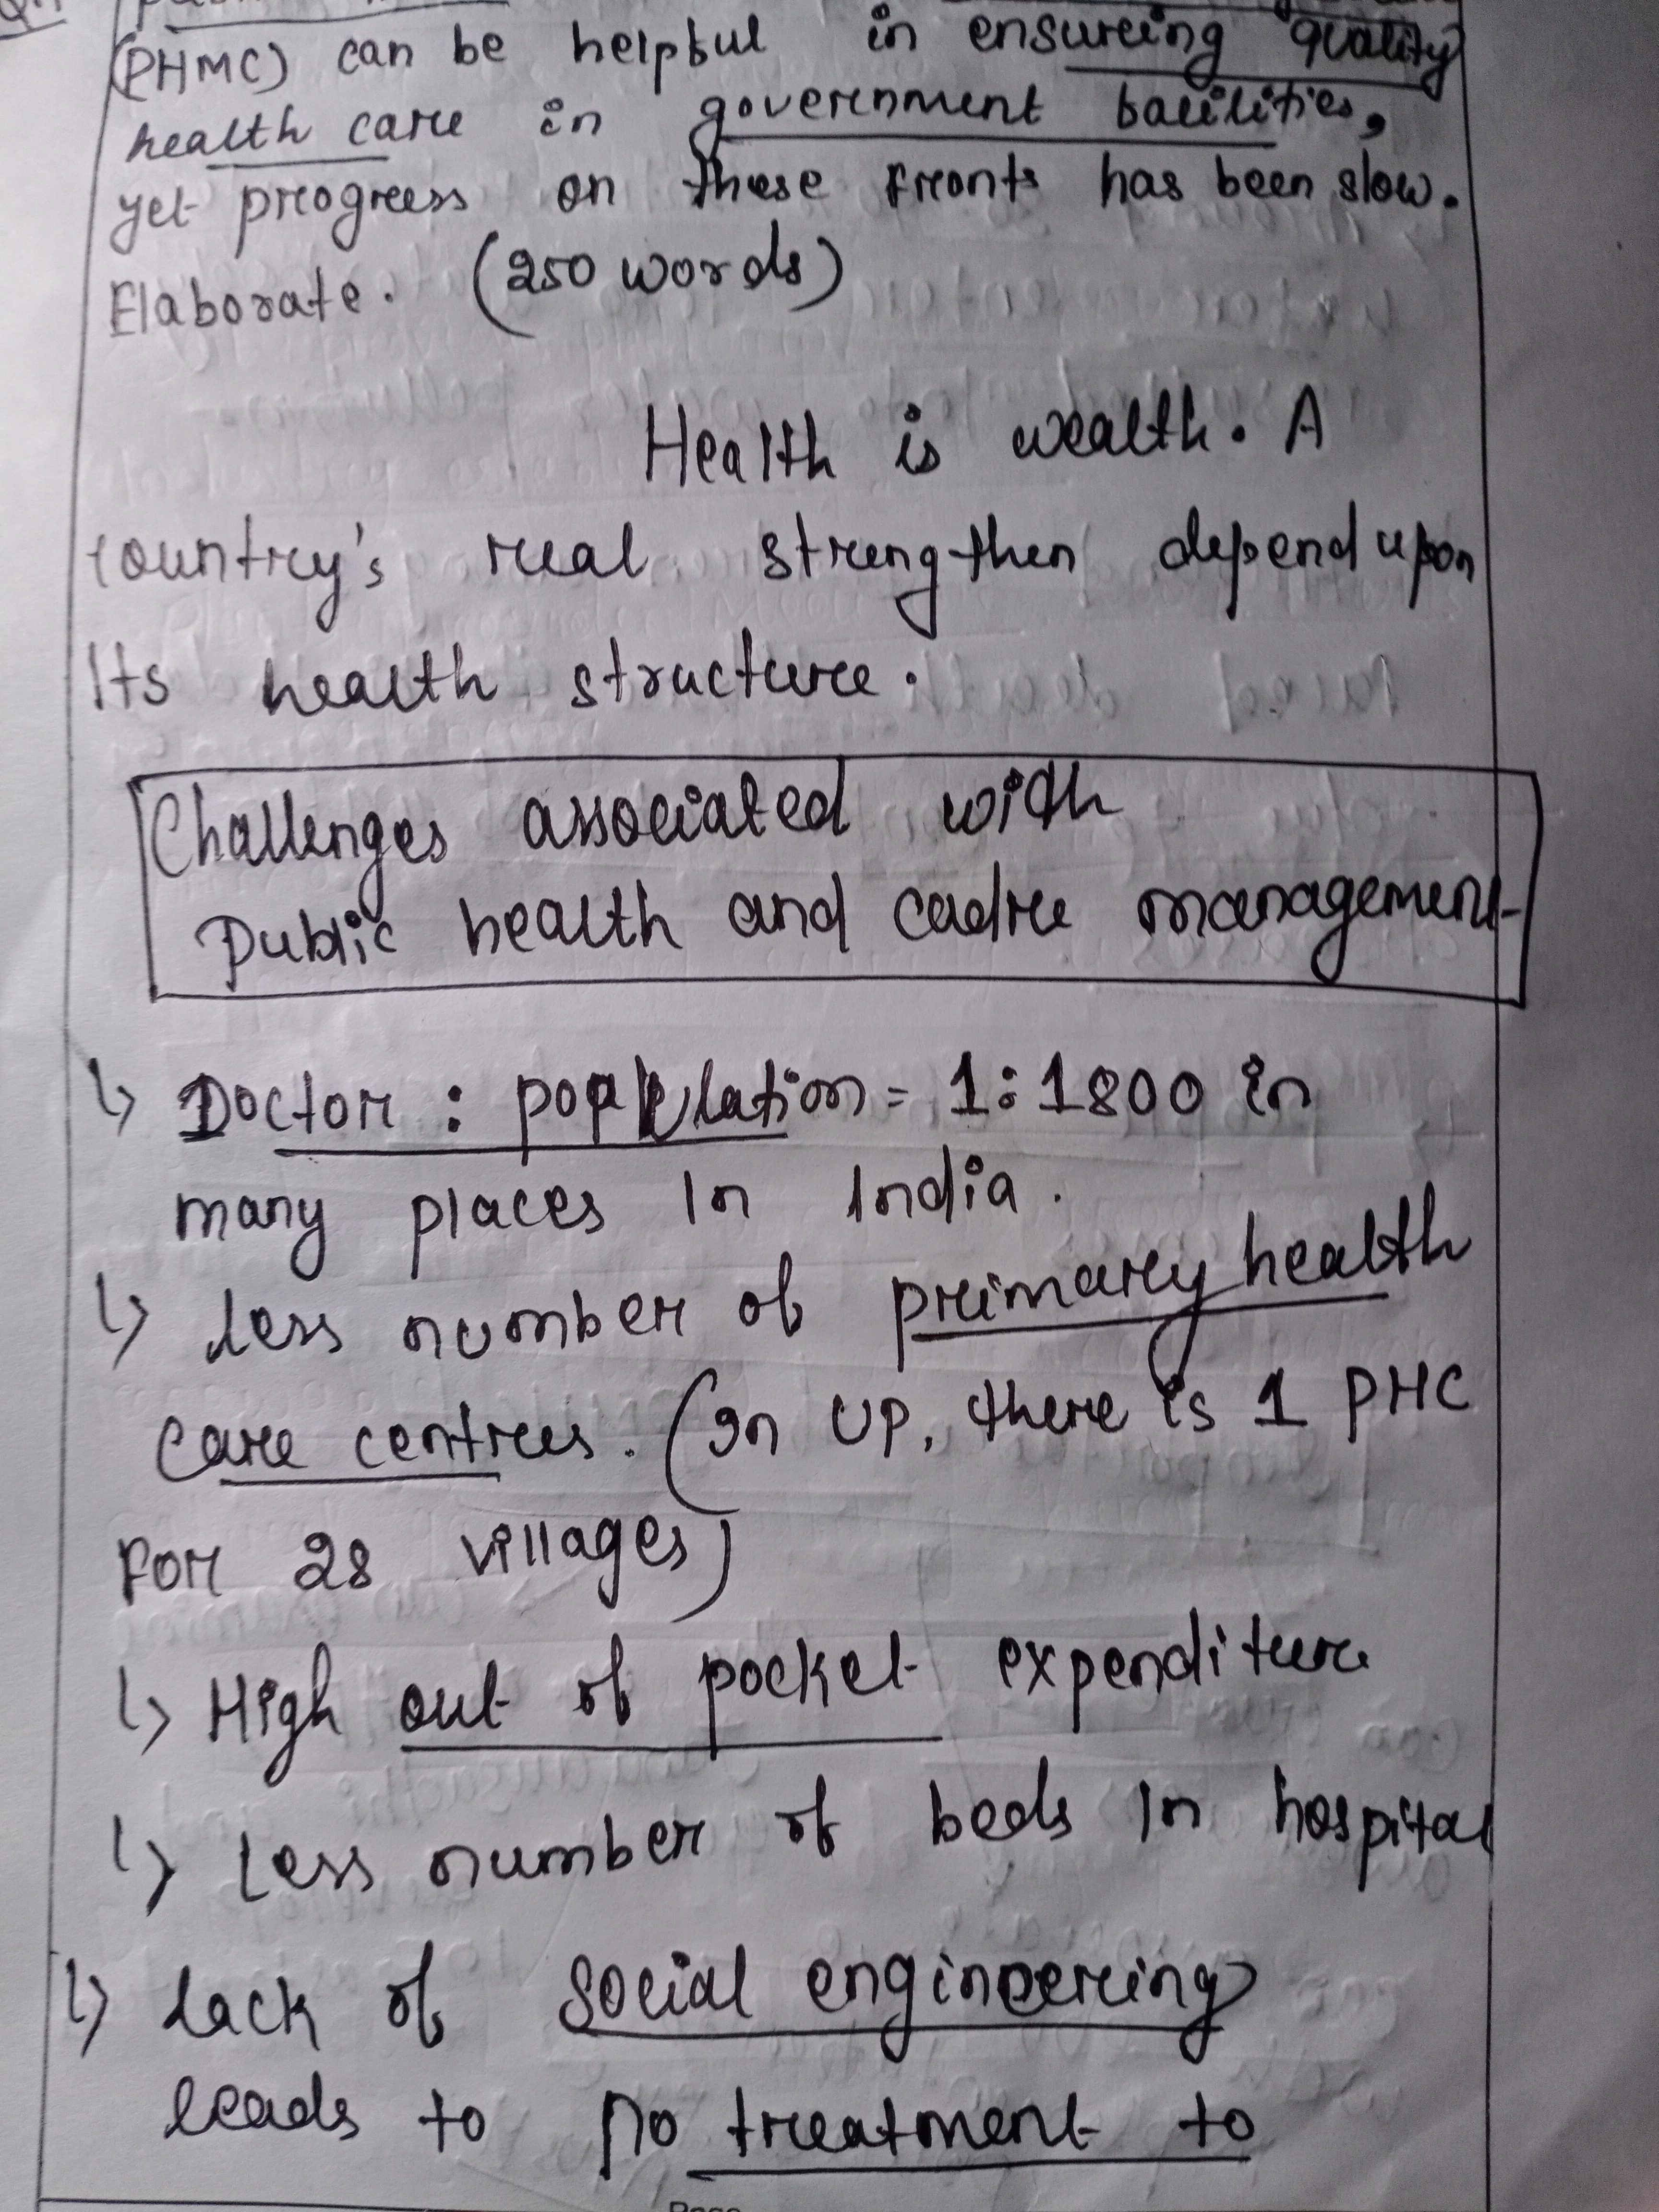 (PHMC) can be helpful in ensuring quality
health care in government facilities,
yet progress on these fronts has been slow.
Elaborate. (250 words)
Health is wealth. A
country's real strengthen depend upon
Its health structure.
Challenges associated with
Public health and cadre management
↳ Doctor : population = 1:1800 in
many places In India.
↳ less number of primary health
care centres. (In UP, there is 1 PHC
For 28 villages)
↳ High out of pocket expenditure
↳ Less number of beds In hospital
↳ Lack of social engineering
leads to no treatment to